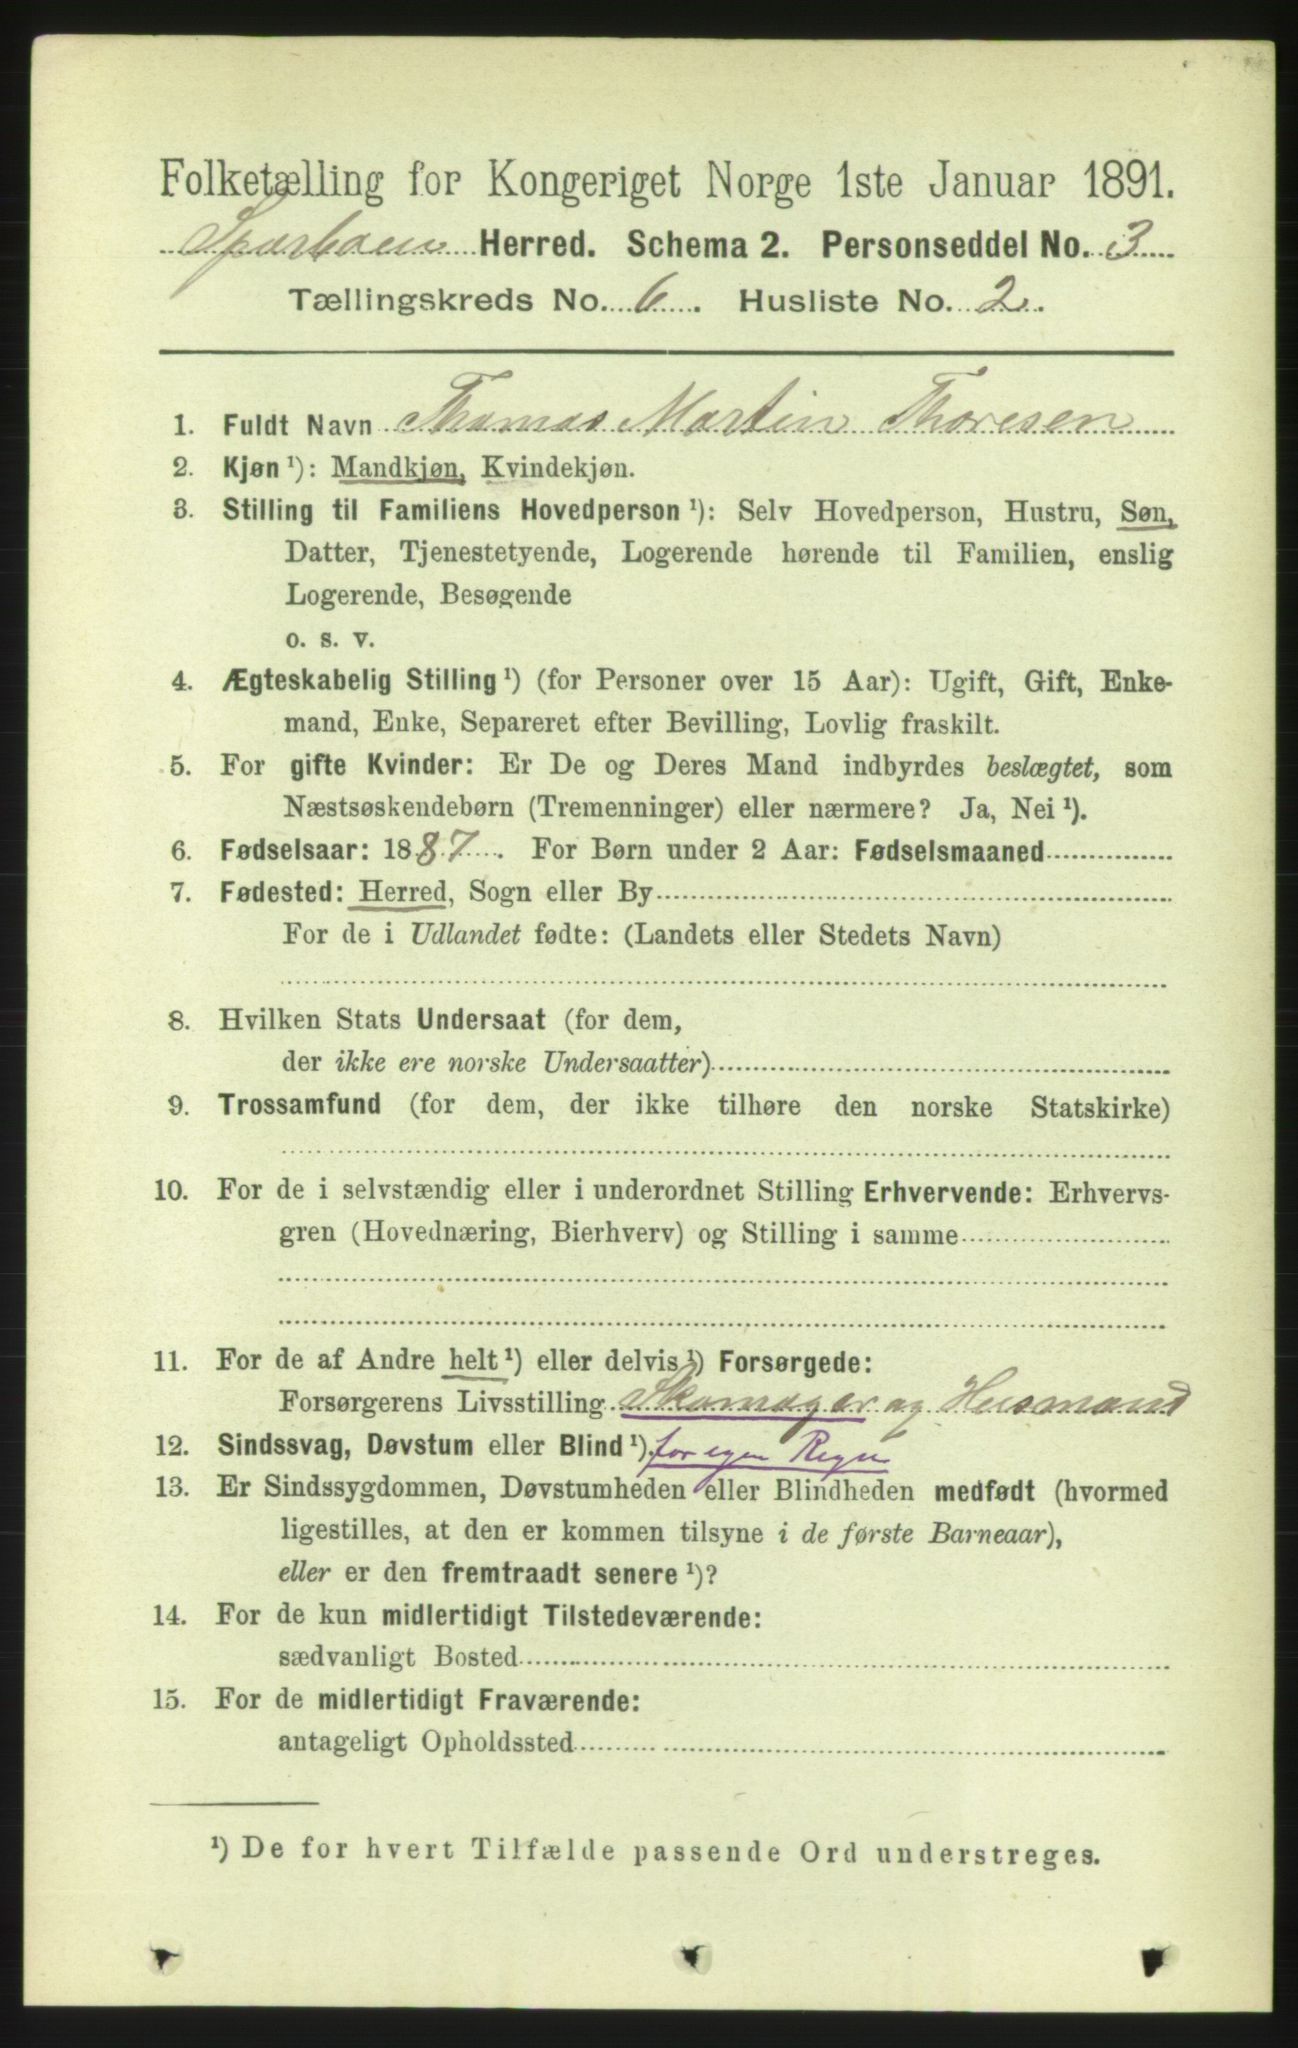 Folketælling for Kongeriget Norge 1ste Januar 1891.
Sparbuen Herred. Schema 2. Personseddel No. 3
Tællingskreds No. 6. Husliste No. 2.
1. Fuldt Navn Thomas Martin Thoresen
2. Kjøn ¹): Mandkjøn, Kvindekjøn.
3. Stilling til Familiens Hovedperson ¹): Selv Hovedperson, Hustru, Søn,
Datter, Tjenestetyende, Logerende hørende til Familien, enslig
Logerende, Besøgende
o. s. v.
4. Ægteskabelig Stilling ¹) (for Personer over 15 Aar): Ugift, Gift, Enke-
mand, Enke, Separeret efter Bevilling, Lovlig fraskilt.
5. For gifte Kvinder: Er De og Deres Mand indbyrdes beslægtet, som
Næstsøskendebørn (Tremenninger) eller nærmere? Ja, Nei ¹).
6. Fødselsaar: 1887. For Børn under 2 Aar: Fødselsmaaned
7. Fødested: Herred, Sogn eller By
For de i Udlandet fødte: (Landets eller Stedets Navn)
8. Hvilken Stats Undersaat (for dem,
der ikke ere norske Undersaatter)
9. Trossamfund (for dem, der ikke tilhøre den norske Statskirke)
10. For de i selvstændig eller i underordnet Stilling Erhvervende: Erhvervs-
gren (Hovednæring, Bierhverv) og Stilling i samme
11. For de af Andre helt ¹) eller delvis ¹) Forsørgede:
Forsørgerens Livsstilling Skomager og Husmand
12. Sindssvag, Døvstum eller Blind ¹). for egen Regn
13. Er Sindssygdommen, Døvstumheden eller Blindheden medfødt (hvormed
ligestilles, at den er kommen tilsyne i de første Barneaar),
eller er den fremtraadt senere ¹)?
14. For de kun midlertidigt Tilstedeværende:
sædvanligt Bosted
15. For de midlertidigt Fraværende:
antageligt Opholdssted
¹) De for hvert Tilfælde passende Ord understreges.